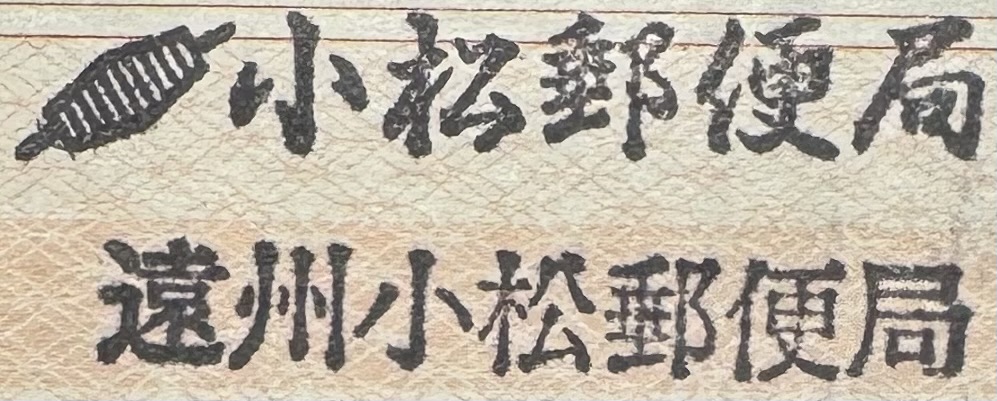 小松郵便局
遠州小松郵便局